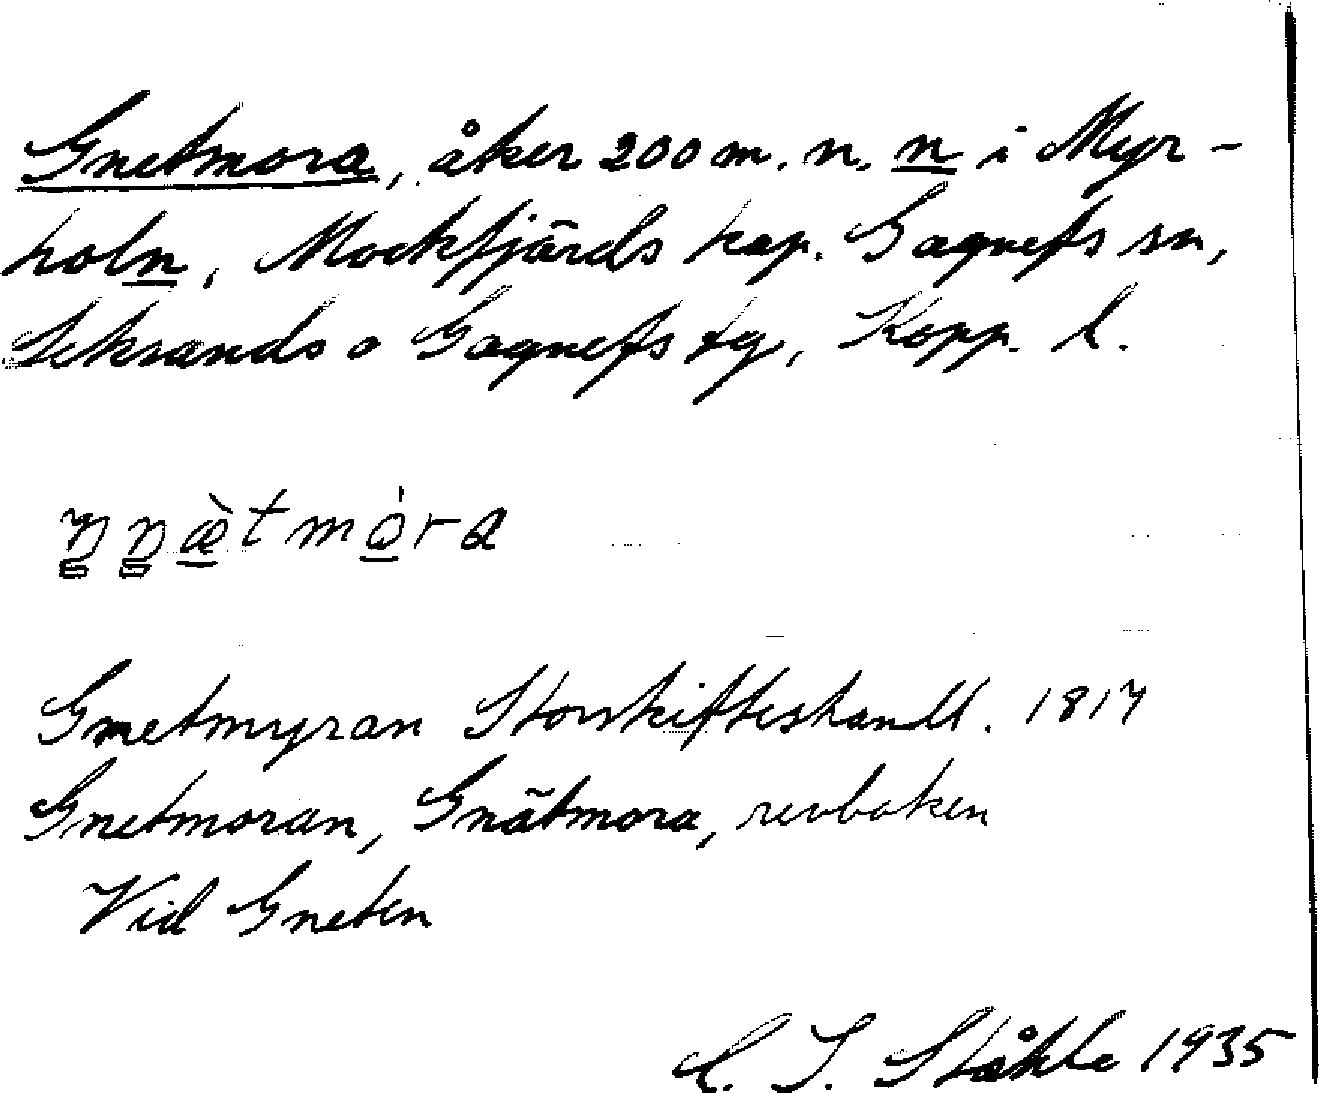 Gnetmora, åker 200 m. n. n i Myr-
holn, Mockfjärds kap. Gagnefs sn,
Leksands o Gagnefs tg, Kopp. l.
Gnetmyran Storskifteshandl. 1817
Gnetmoran, Gnätmora, revboken
Vid Gneten
C. I. Ståhle 1935